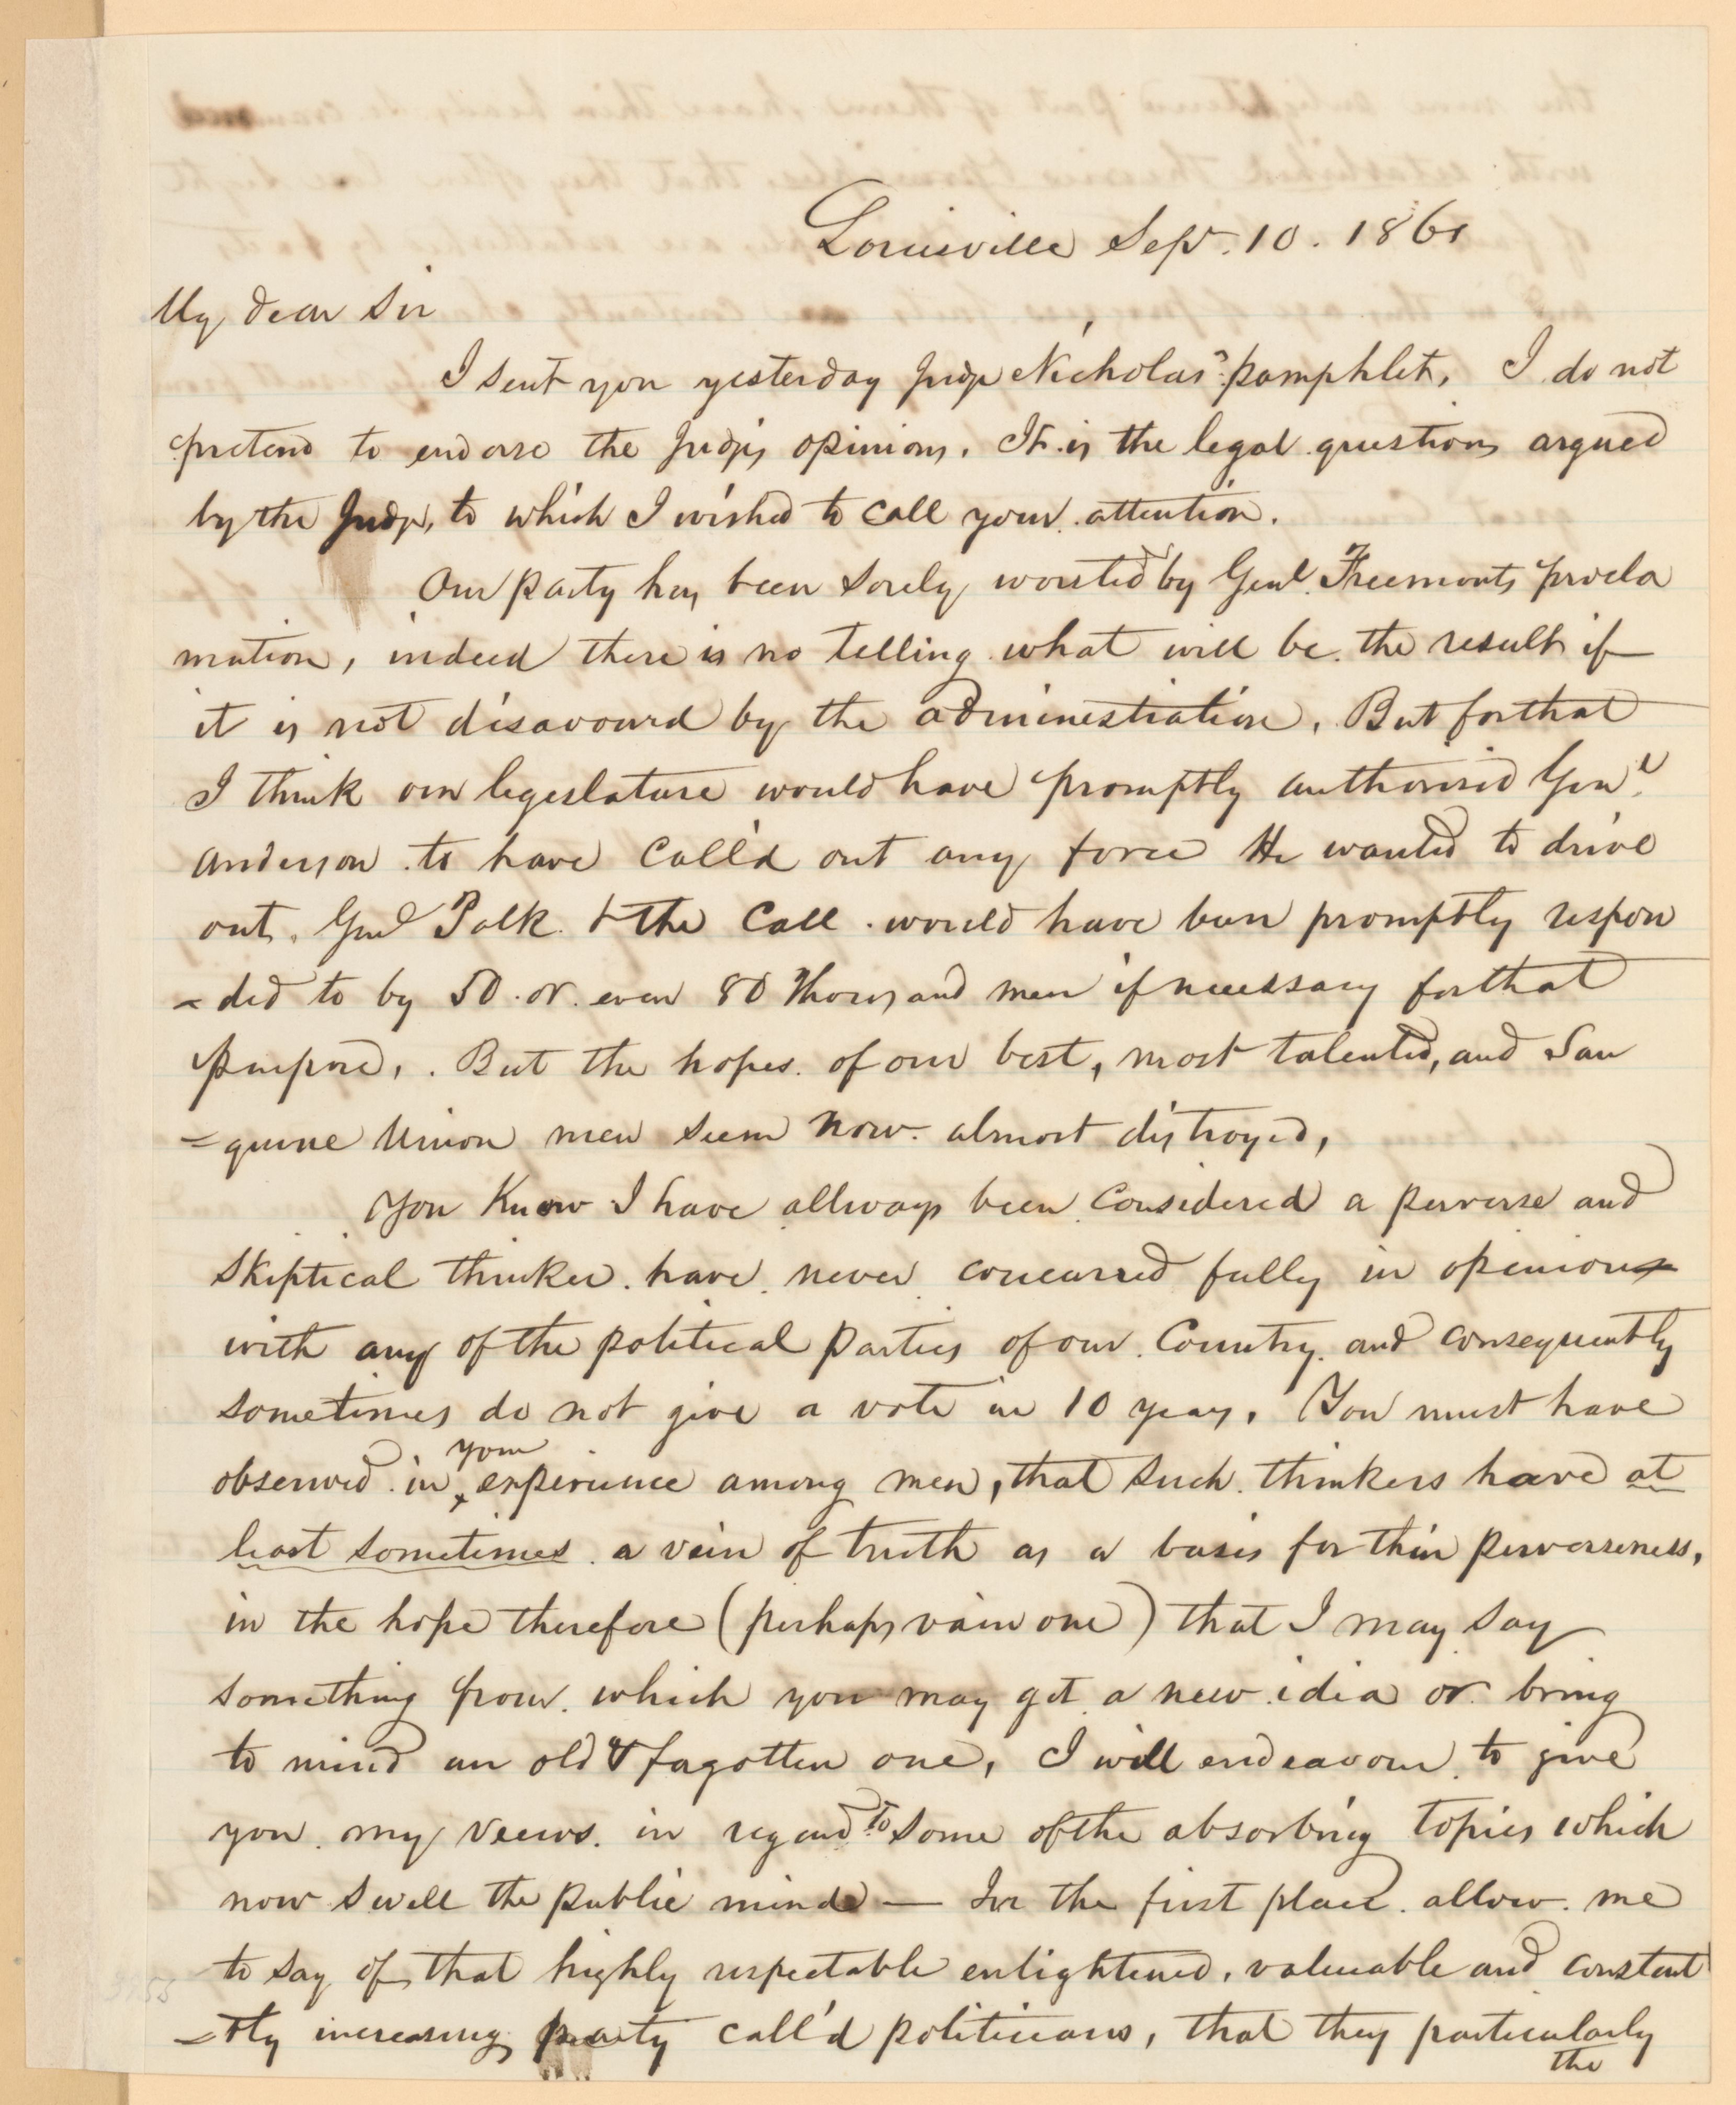 Louisville Sep. 10. 1861
My dear Sir
I sent you yesterday Judge Nicholas' pamphlet, I do not
pretend to endorse the Judge's opinions. It is the legal questions argued
by the Judge, to which I wished to call your attention.
Our party has been sorely worsted by Genl. Freemonts procla
mation, indeed there is no telling what will be the result if
it is not disavowed by the administration. But for that
I think our legislature would have promptly authorised Genl.
Anderson to have call'd out any force He wanted to drive
out Genl Polk & the Call would have been promptly respon
-ded to by 50 or even 80 Thousand men if necessary for that
purpose. But the hopes of our best, most talented, and San
=guine Union men seem now almost distroyed,
You Know I have allways been Considered a perverse and
skeptical thinker have never concurred fully in opinion
with any of the political parties of our Country and consequently
sometimes do not give a vote in 10 years. You must have
observed in your experience among men, that such thinkers have at
least sometimes a vein of truth as a basis for their perverseness,
in the hope therefore (perhaps vain one) that I may say
something from which you may get a new idea or bring
to mind an old & fagotten one, I will endeavour to give
you my veiws in regard to some of the absorbing topics which
now swell the public mind — In the first place allow me
to say of that highly respectable enlightened, valuable and constant
=tly increasing party call'd politicians, that they particularly
the